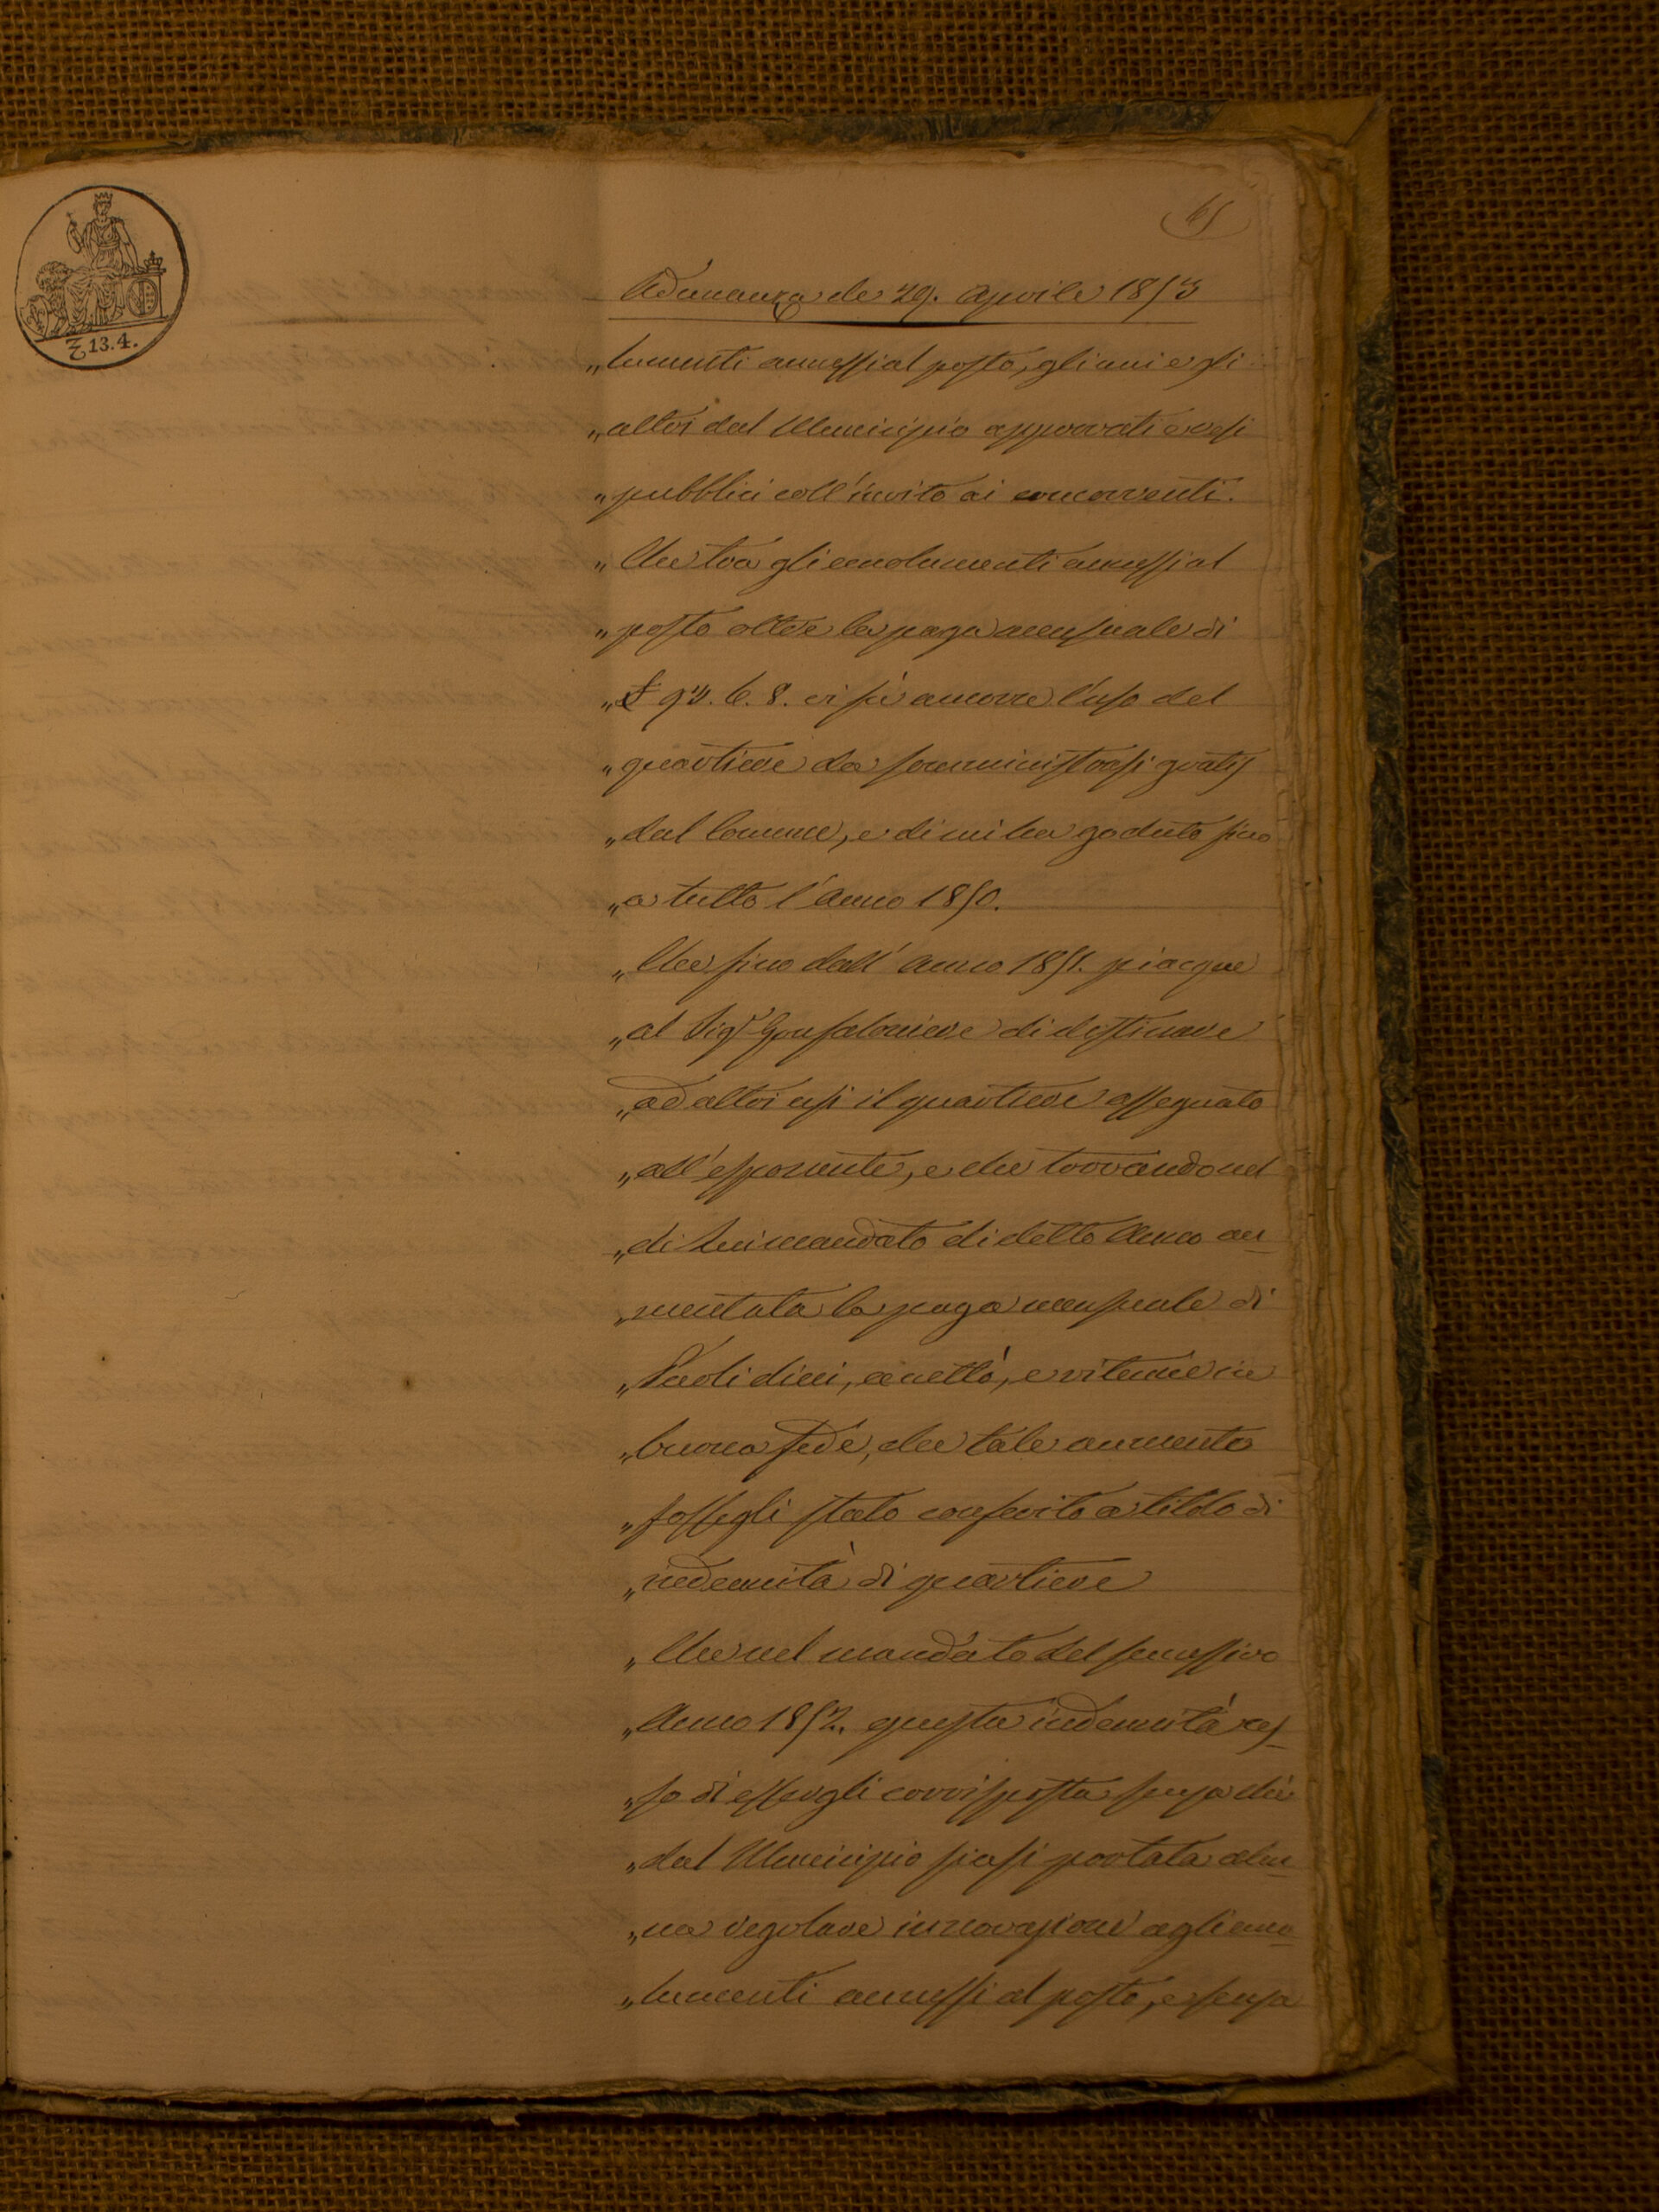 65
Adunanza de 29. Aprile 1853
₤ 13.4.
„lumenti annessi al posto, gli uni e gli
„altri dal Municipio approvati e resi
„pubblici coll'invito ai concorrenti.
„Che tra gli emolumenti annessi al
„posto oltre la paga mensuale di
„£ 93. 6. 8. vi fù ancora l'uso del
„quartiere da somministrarsi gratis
„dal Comune, e di cui ha goduto fino
„a tutto l'Anno 1850.
„Che fino dall' Anno 1851. piacque
„al Sigr Gonfaloniere di destinare
„ad altri usi il quartiere assegnato
„all'esponente, e che trovando nel
„di Lui mandato di detto Anno au
„mentata la paga mensuale di
„Paoli dieci, accettò, e ritenne in
„buona fede, che tale aumento
„fossegli stato conferito a titolo di
„indennità di quartiere
„Che nel mandato del successivo
„Anno 1852. questa indennità ces
„sò di essergli corrisposta senza che
„dal Municipio siasi portata alcu
„na regolare innovazione agli emo
„lumenti annessi al posto, e senza